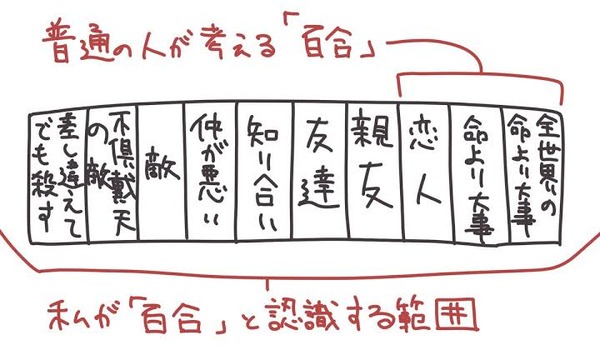 普通の人が考える「百合」
全世界の
命より大事
命より大事
恋人
親友
友達
知り合い
仲が悪い
敵
不倶戴天
の敵
差し違えて
でも殺す
私が「百合」と認識する範囲